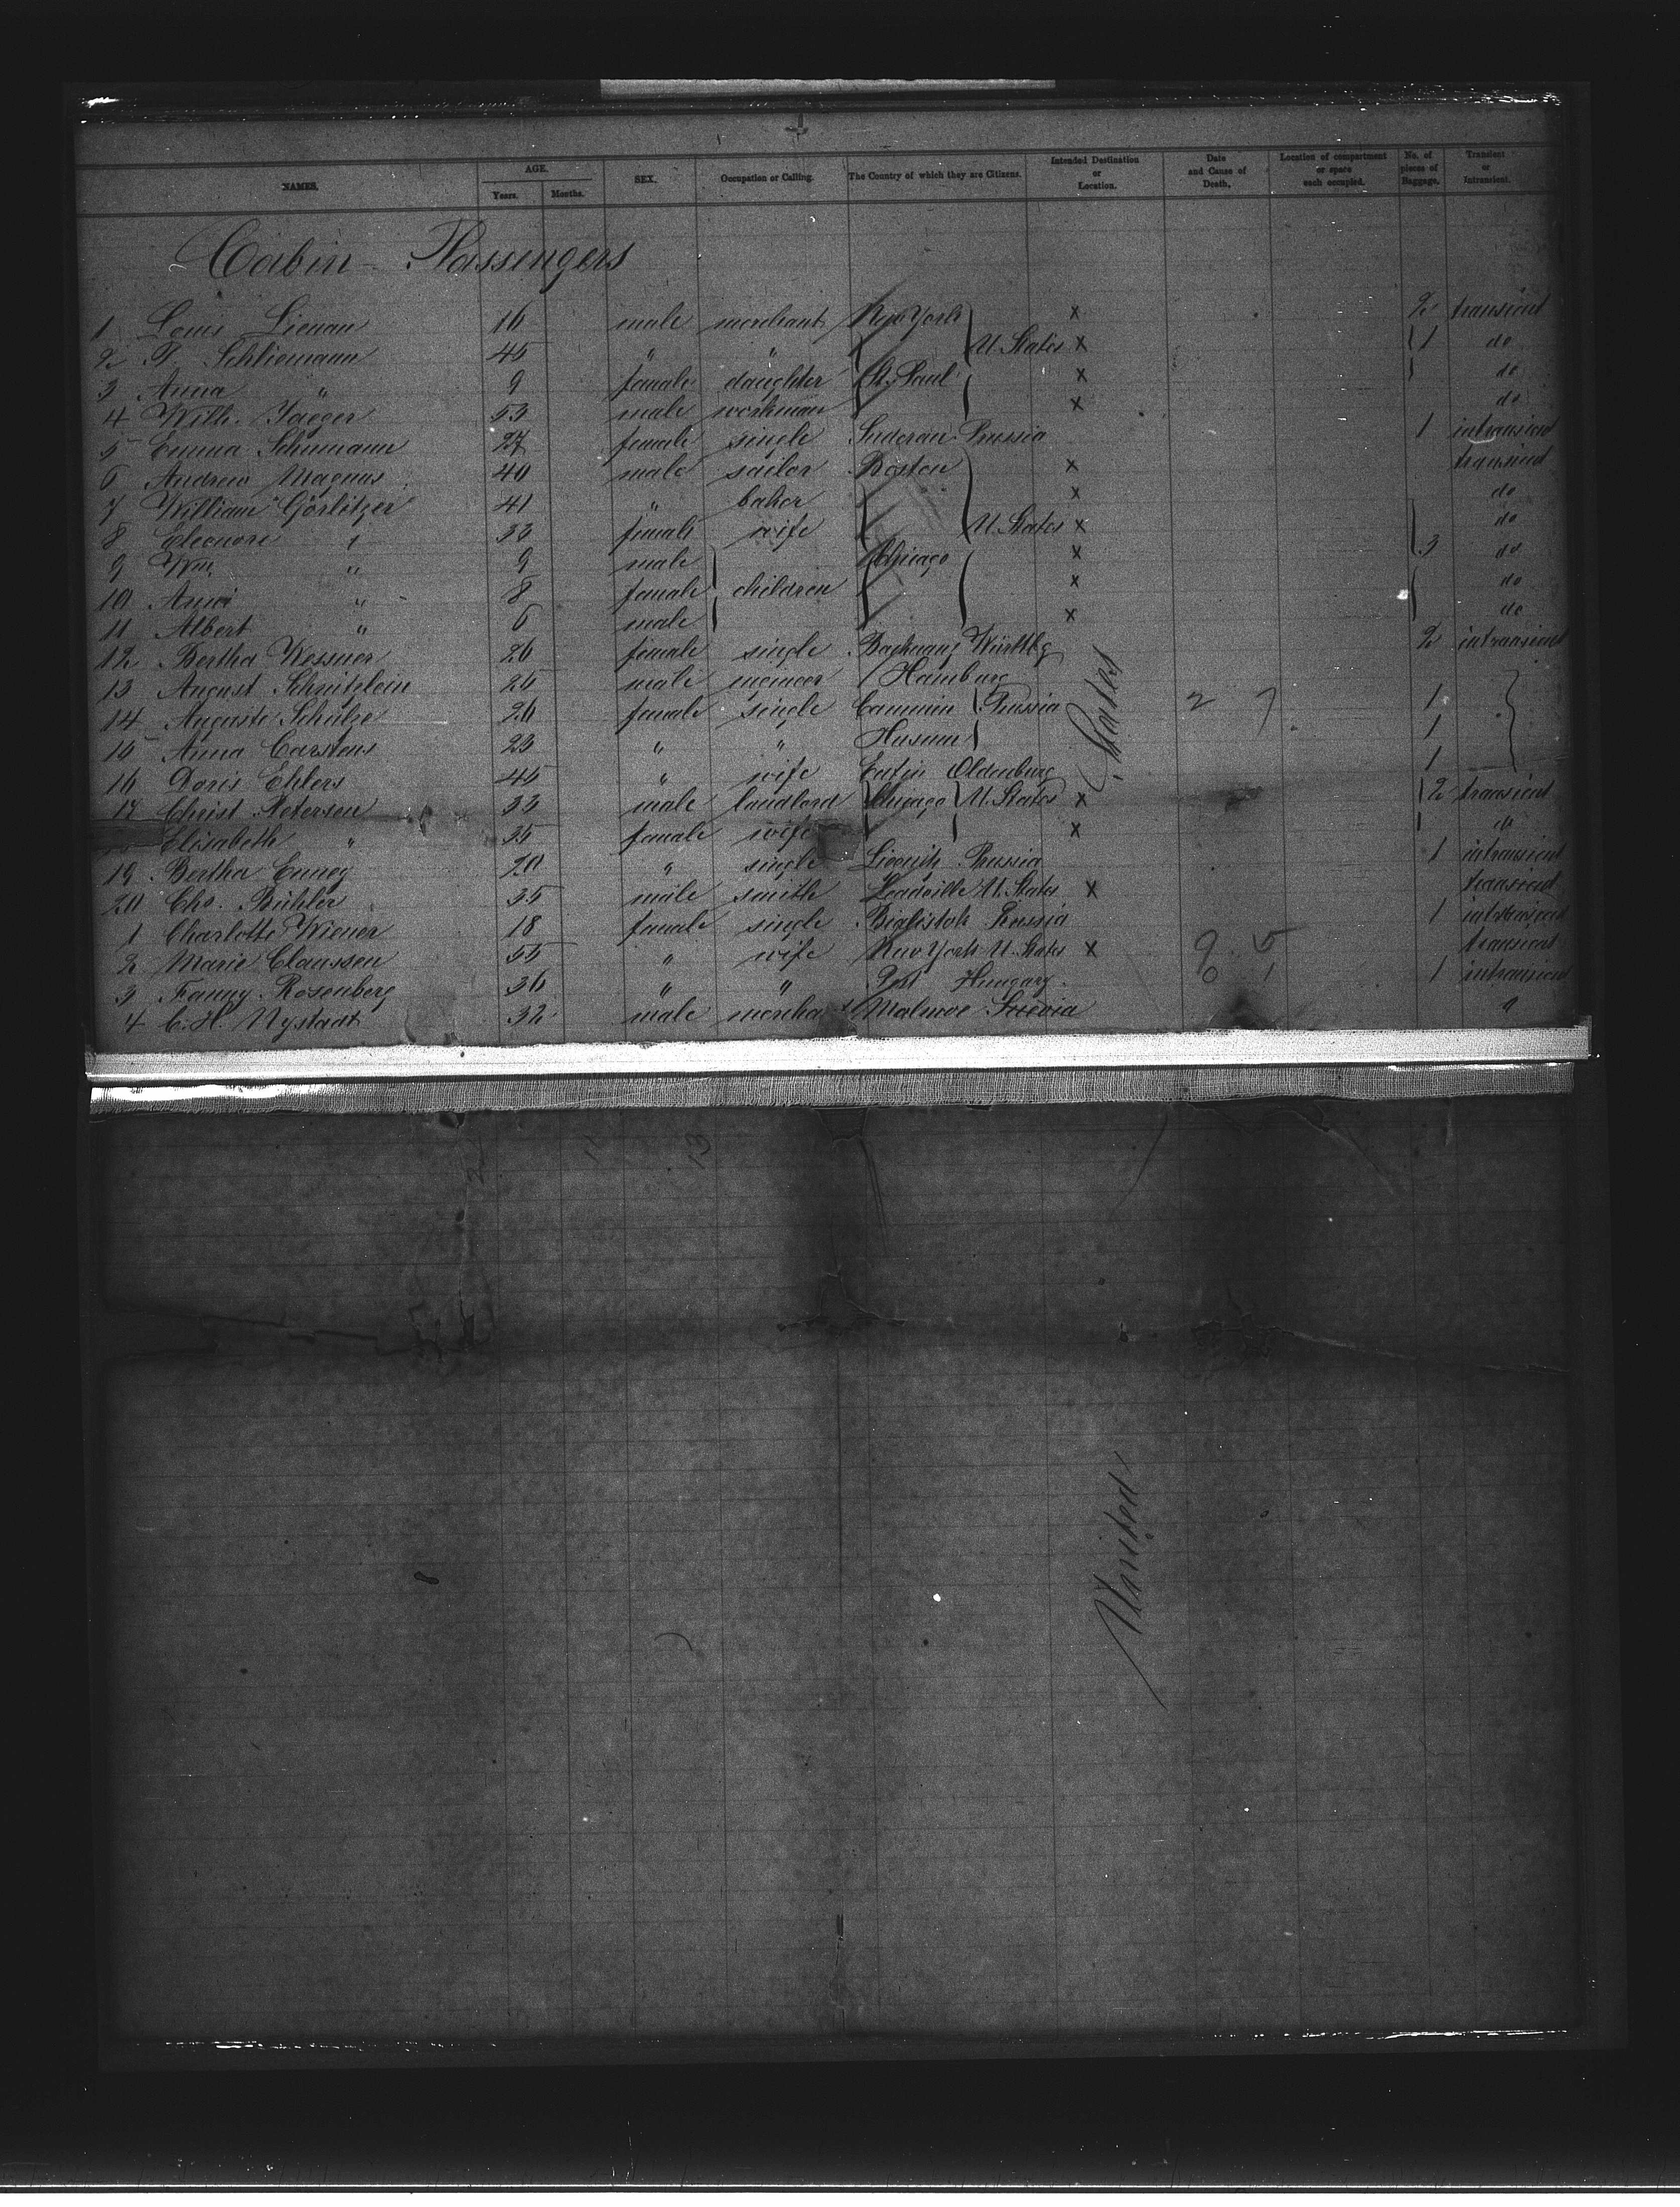 NAMES. AGE. Years. Months. SEX. Occupation or Calling. The Country of which they are Citizens. Intended Destination or Location. Date and Cause of Death. Location of compartment or space each occupied. No. of pieces of Baggage. Transient or Intransient.
Cabin - Passengers
1 Louis Lienau 16 male merchant New York x 2 transient
2 T. Schliemann 45 " " U. States x 1 do
3 Anna " 9 female daughter St. Paul x do
4 Wilh. Jaeger 53 male workman x do
5 Emma Schumann 27 female single Prussia 1 intransient
6 Andrew Magnus 40 male sailor Boston x transient
7 William Görlitzer 41 " baker x do
8 Eleonore " 33 female wife U. States x do
9 Wm. " 9 male Chicago x 3 do
10 " 8 female children x do
11 Albert " 6 male x do
12 Bertha Wessner 26 female single Backnang Württbg 2 intransient
13 August Schnitzlein 25 male Hamburg
14 Auguste Schulze 26 female single Cammin Prussia 2 7 1
15 Anna Carstens 23 " " Husum 1
16 Doris Ehlers 45 " wife Eutin Oldenburg 1
17 Christ Petersen 33 male landlord Chicago U. States x 2 transient
Elisabeth " 35 female wife x do
19 Bertha 20 " single Prussia 1 intransient
20 Chs. Bühler 35 male smith Leadville U. States x transient
1 Charlotte Wiener 18 female single Bialistok Russia 1 intransient
2 Marie Claussen 55 " wife New York U. States x 9 5 transient
3 Fanny Rosenberg 36 " " Pest Hungary 0 1 1 intransient
4 C. H. Nystadt 32 male merchant Malmoe Suevia "
United States